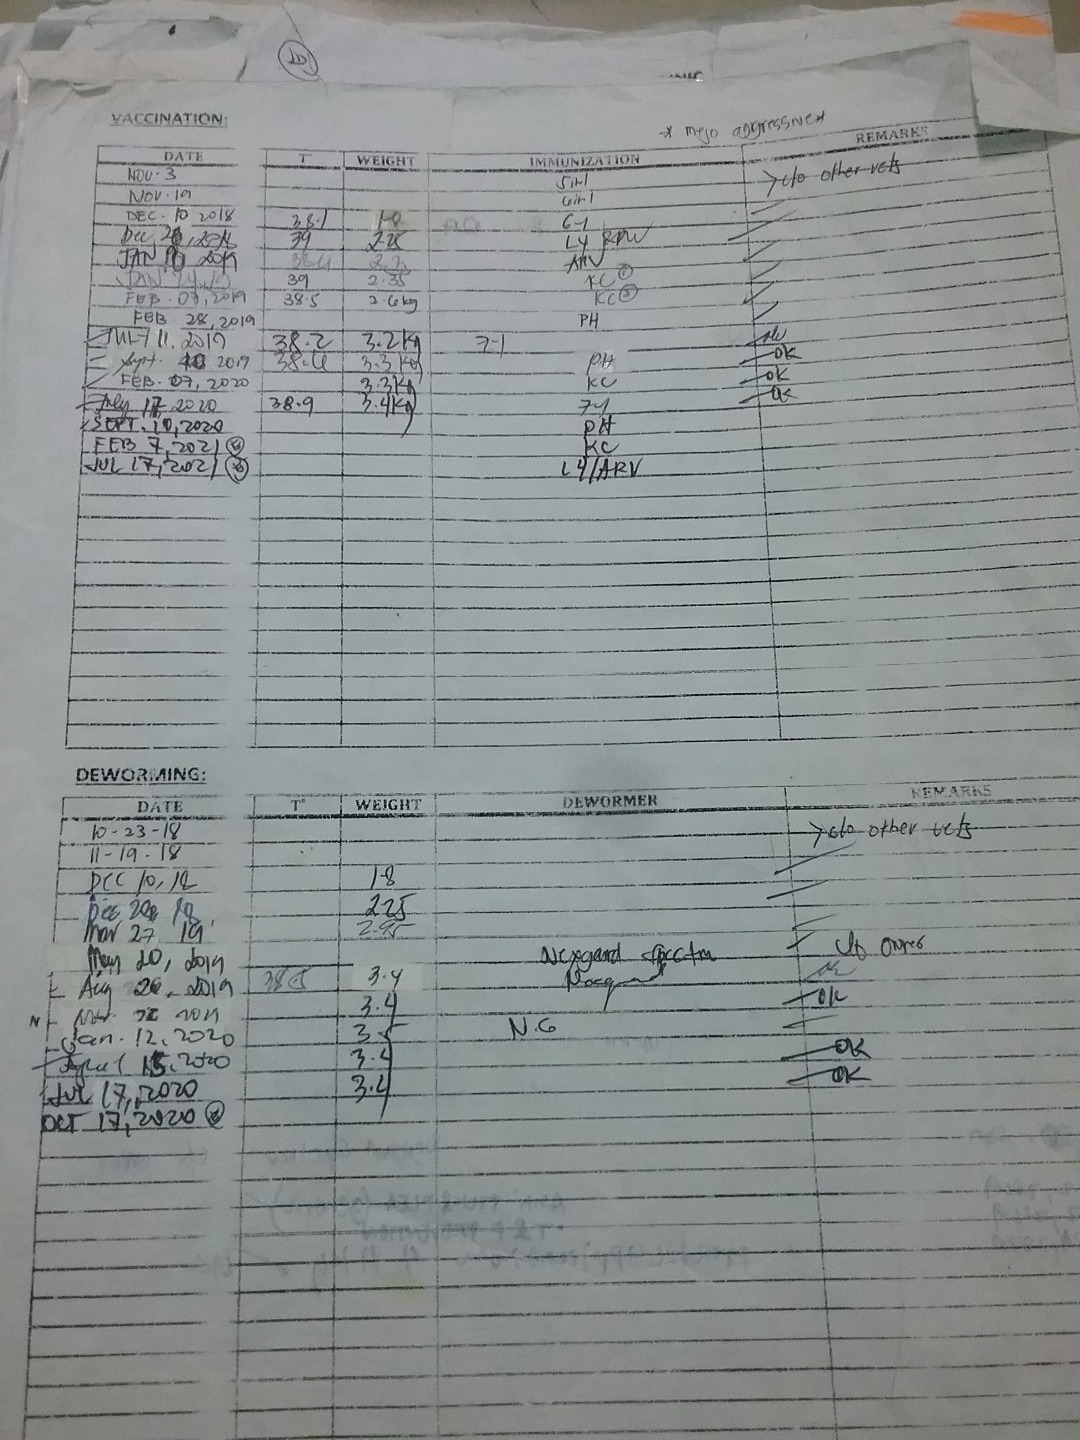 VACCINATION:
* mejo aggressive *
DATE T° WEIGHT IMMUNIZATION REMARKS
NOV. 3 5in1 >c/o other vets
NOV. 19 6in1
DEC. 10 2018 38.1 1.8 6-1
Dec, 2018 39 2.25 L4
JAN 2019 ARV
JAN 39 2.35 KC ①
FEB. 07, 2019 38.5 2.6kg KC ②
FEB 28, 2019 PH
JULY 11, 2019 38.2 3.2kg 7-1
Sept. 10 2019 38.4 3.3kg PH OK
FEB. 07, 2020 3.3kg KC OK
July 17, 2020 38.9 3.4kg 7-1 OK
SEPT. 10, 2020 PH
FEB 7, 2021 KC
JUL 17, 2021 L4/ARV
DEWORMING:
DATE T° WEIGHT DEWORMER REMARKS
10-23-18 >c/o other vets
11-19-18
DEC 10, 18 1.8
Dec 18, 2.25
Mar 27 19 2.95
May 20, 2019 Nexgard Spectra c/o owner
Aug 2019 38.5 3.4
2019 3.4 OK
N
Jan. 12, 2020 3.5 N.G
April 15, 2020 3.4 OK
JUL 17, 2020 3.4 OK
OCT 17, 2020